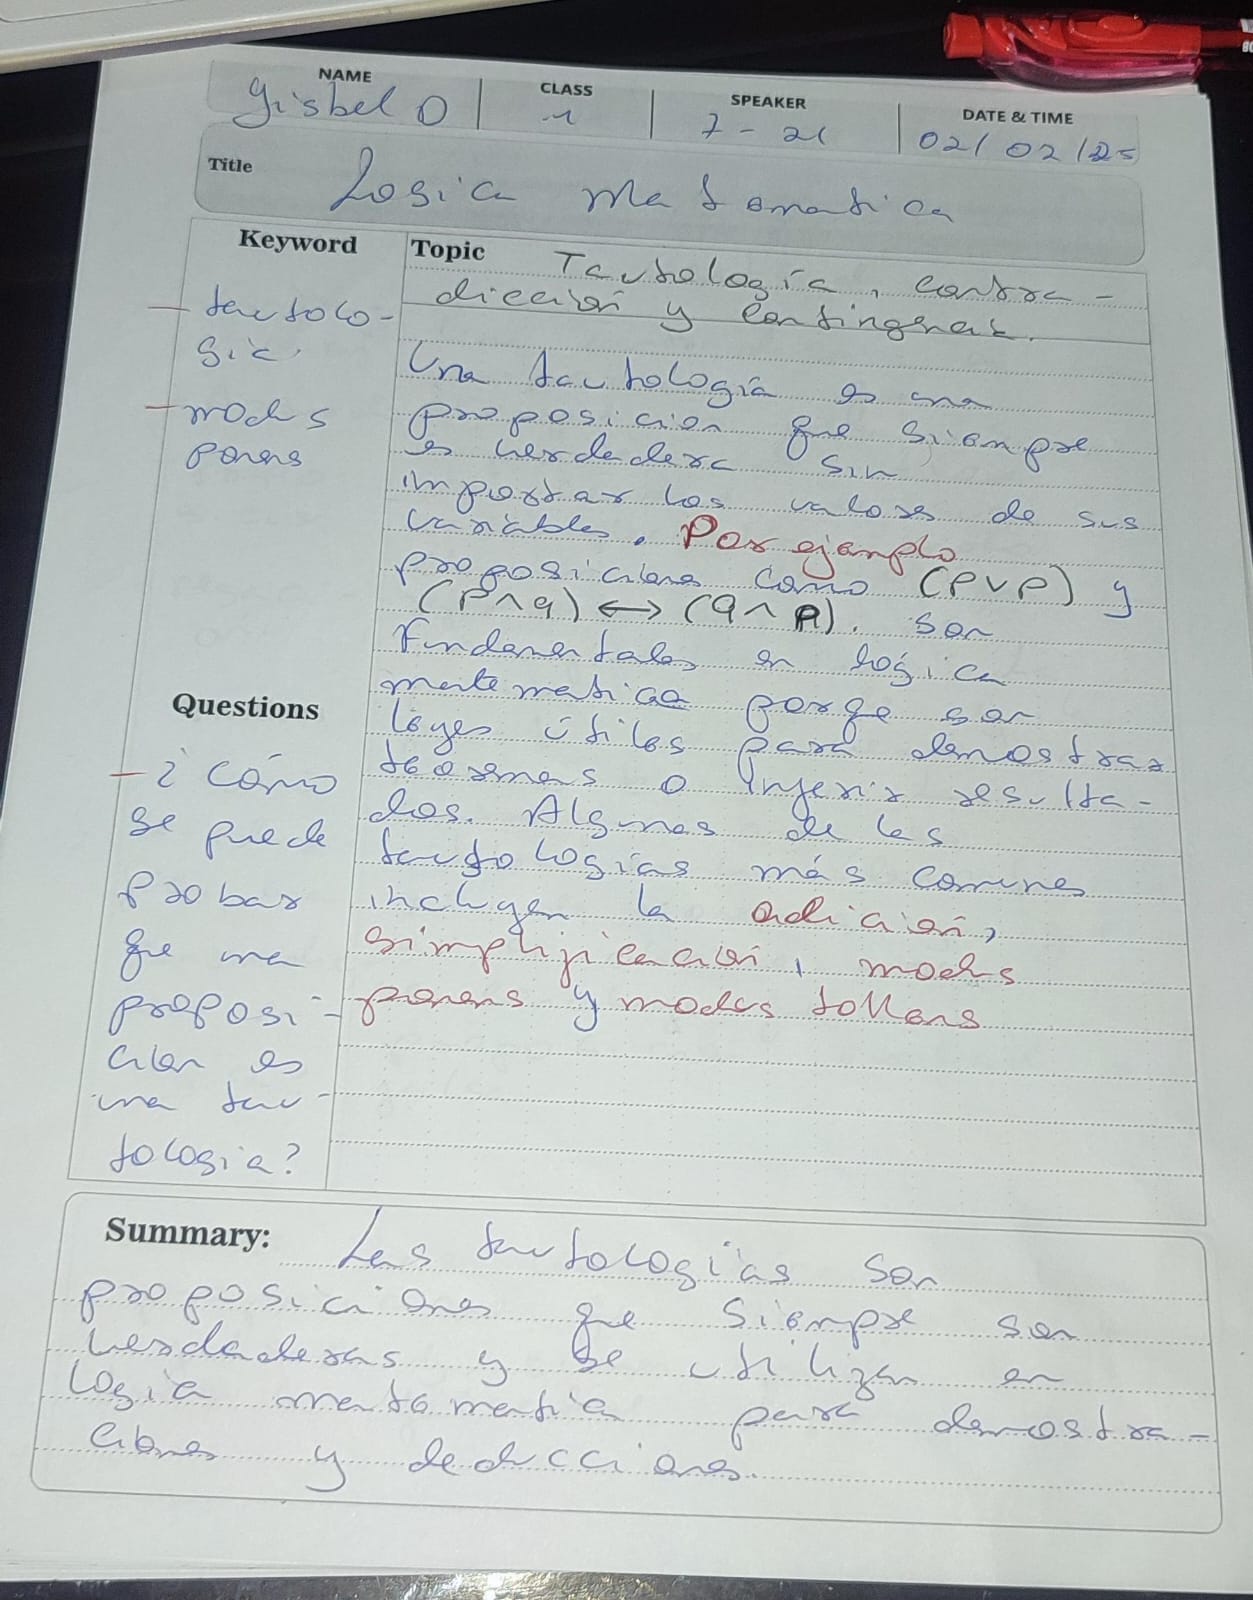 NAME
Gisbel O
CLASS
1
SPEAKER
7 - 21
DATE & TIME
02/02/25
Title
Logica matematica
Keyword
- tautolo-
gia
- modus
ponens
Questions
- ¿cómo
se puede
probar
que una
proposi-
cion es
una tau-
tologia?
Topic Tautología, contra-
dicción y contingencia.
Una tautología es una
proposicion que siempre
es verdadera sin
importar los valores de sus
variables. Por ejemplo
proposiciones como (P∨P) y
(P∧q) ↔ (q∧P). Son
fundamentales en lógica
matematica porqe son
leyes útiles para demostrar
teoremas o inferir resulta-
dos. Algunas de las
tautologías más comunes
incluyen la adición,
simplificación, modus
ponens y modus tollens
Summary: Las tautologías son
proposiciones que siempre son
verdaderas y se utilizan en
logia matematica para demostra-
ciones y deducciones.